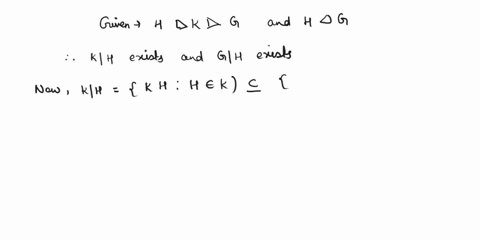 Given → H ▷ K ▷ G and H △ G
∴ K/H exists and G/H exists
Now, K/H = { K H : H ∈ K } ⊆ {